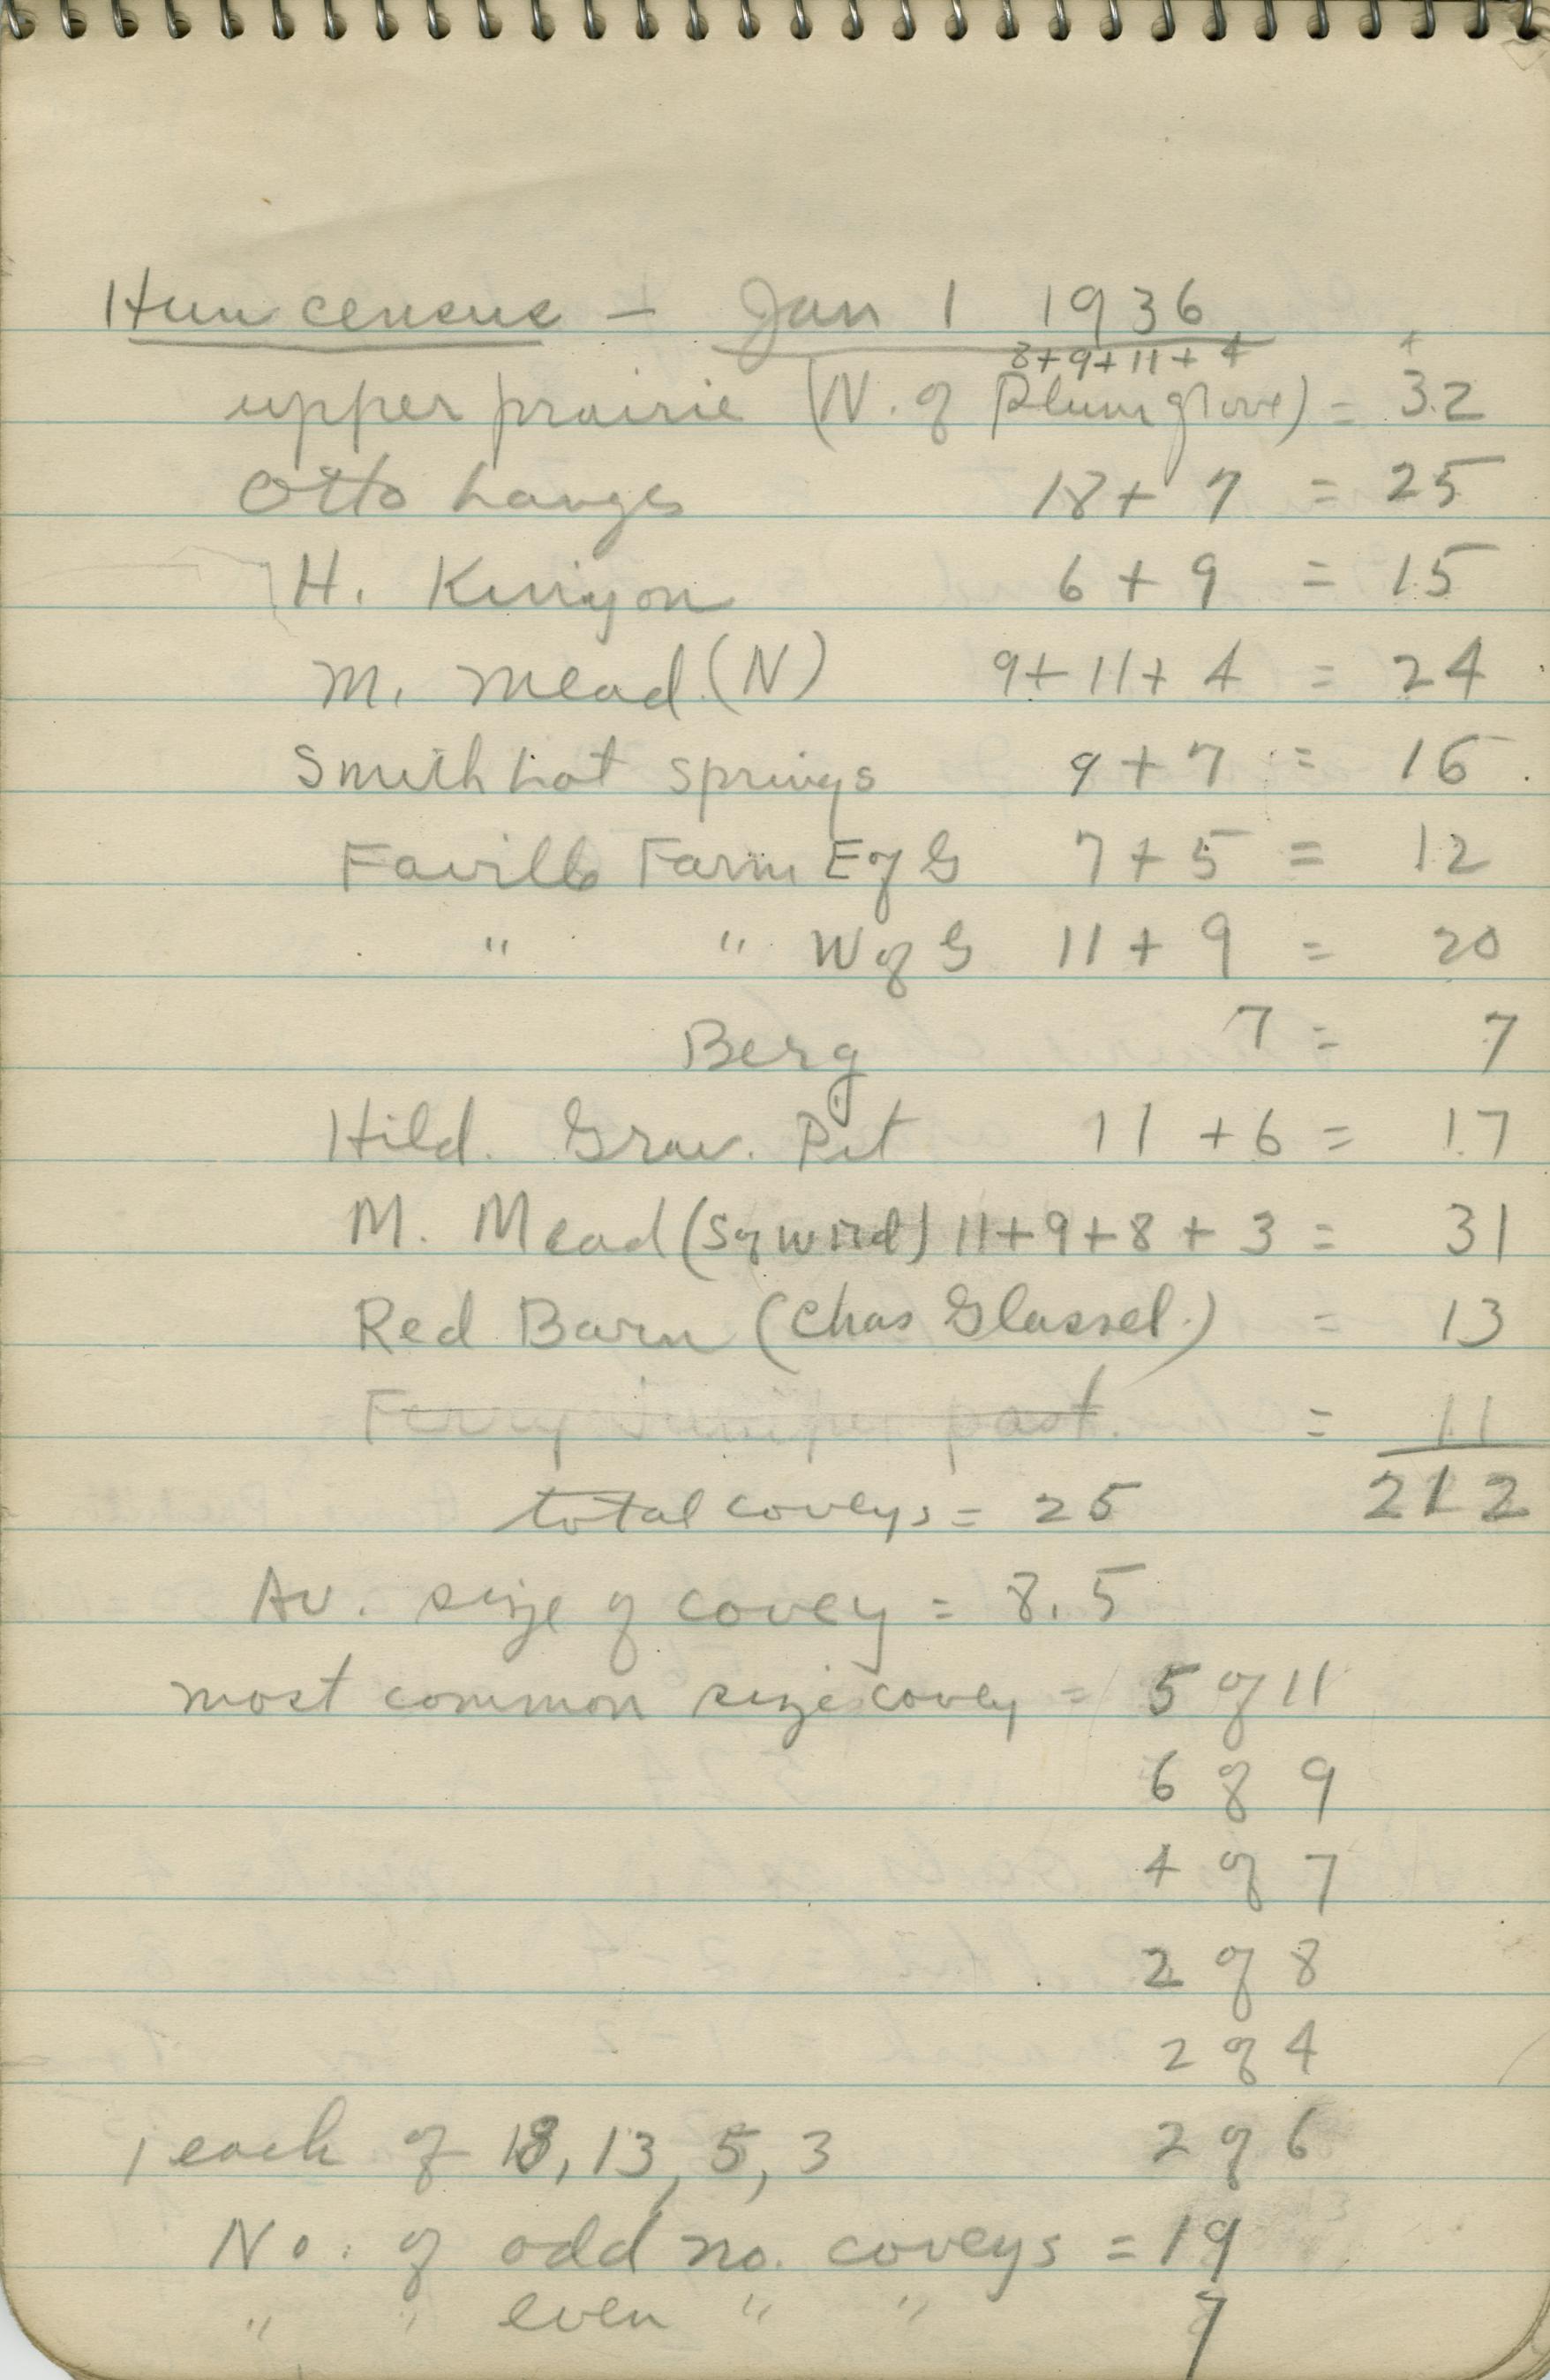 Hun census – Jan 1 1936
8+9+11+4
upper prairie (N. of Plum grove) = 32
Otto Langes 18+ 7 = 25
H. Kinyon 6 + 9 = 15
M. Mead (N) 9+ 11+ 4 = 24
Smith hot springs 9 + 7 = 16
Faville Farm E of G 7 + 5 = 12
" " W of G 11 + 9 = 20
Berg 7 = 7
Hild. Grav. Pit 11 + 6 = 17
M. Mead (S of Wird) 11+9+8 + 3 = 31
Red Barn (Chas Glassel.) = 13
Ferry Juniper past. = 11
total coveys = 25 212
Av. size of covey = 8.5
most common size covey = 5 of 11
6 of 9
4 of 7
2 of 8
2 of 4
1 each of 18, 13, 5, 3 2 of 6
No. of odd no. coveys = 19
" " even " " 7